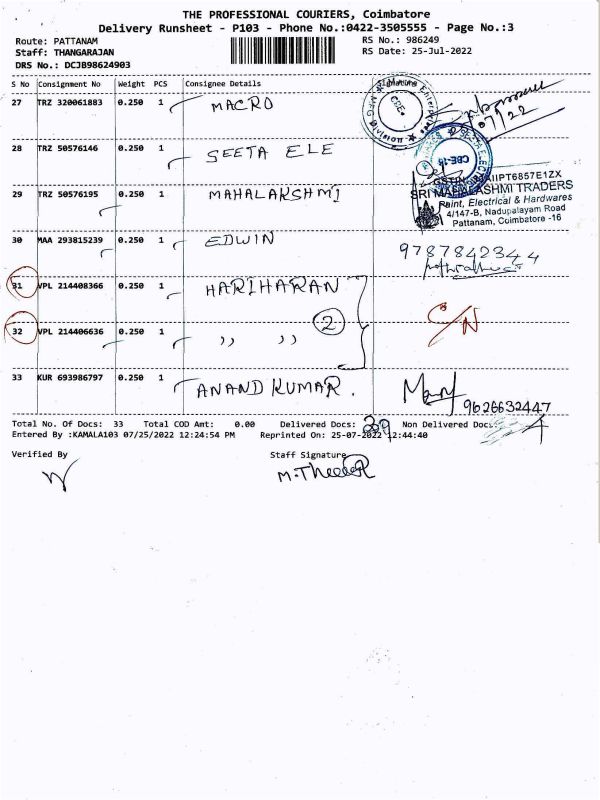 THE PROFESSIONAL COURIERS, Coimbatore
Delivery Runsheet - P103 - Phone No.:0422-3505555 - Page No.:3
Route: PATTANAM RS No.: 986249
Staff: THANGARAJAN RS Date: 25-Jul-2022
DRS No.: DCJB98624903
S No Consignment No Weight PCS Consignee Details Signature
27 TRZ 320061883 0.250 1 MACRO
07/22
28 TRZ 50576146 0.250 1 SEETA ELE
CBE-18
GSTIN: 33AIIPT6857E1ZX
SRI MAHALASHMI TRADERS
29 TRZ 50576195 0.250 1 MAHALAKSHMI
Paint, Electrical & Hardwares
4/147-B, Nadupalayam Road
Pattanam, Coimbatore -16
30 MAA 293815239 0.250 1 EDWIN 9787842344
31 VPL 214408366 0.250 1 HARIHARAN
2 C/N
32 VPL 214406636 0.250 1 ,, ,,
33 KUR 693986797 0.250 1 ANAND KUMAR. 9626632447
Total No. Of Docs: 33 Total COD Amt: 0.00 Delivered Docs: Non Delivered Doc: 4
Entered By :KAMALA103 07/25/2022 12:24:54 PM Reprinted On: 25-07-2022 12:44:40
Verified By Staff Signature